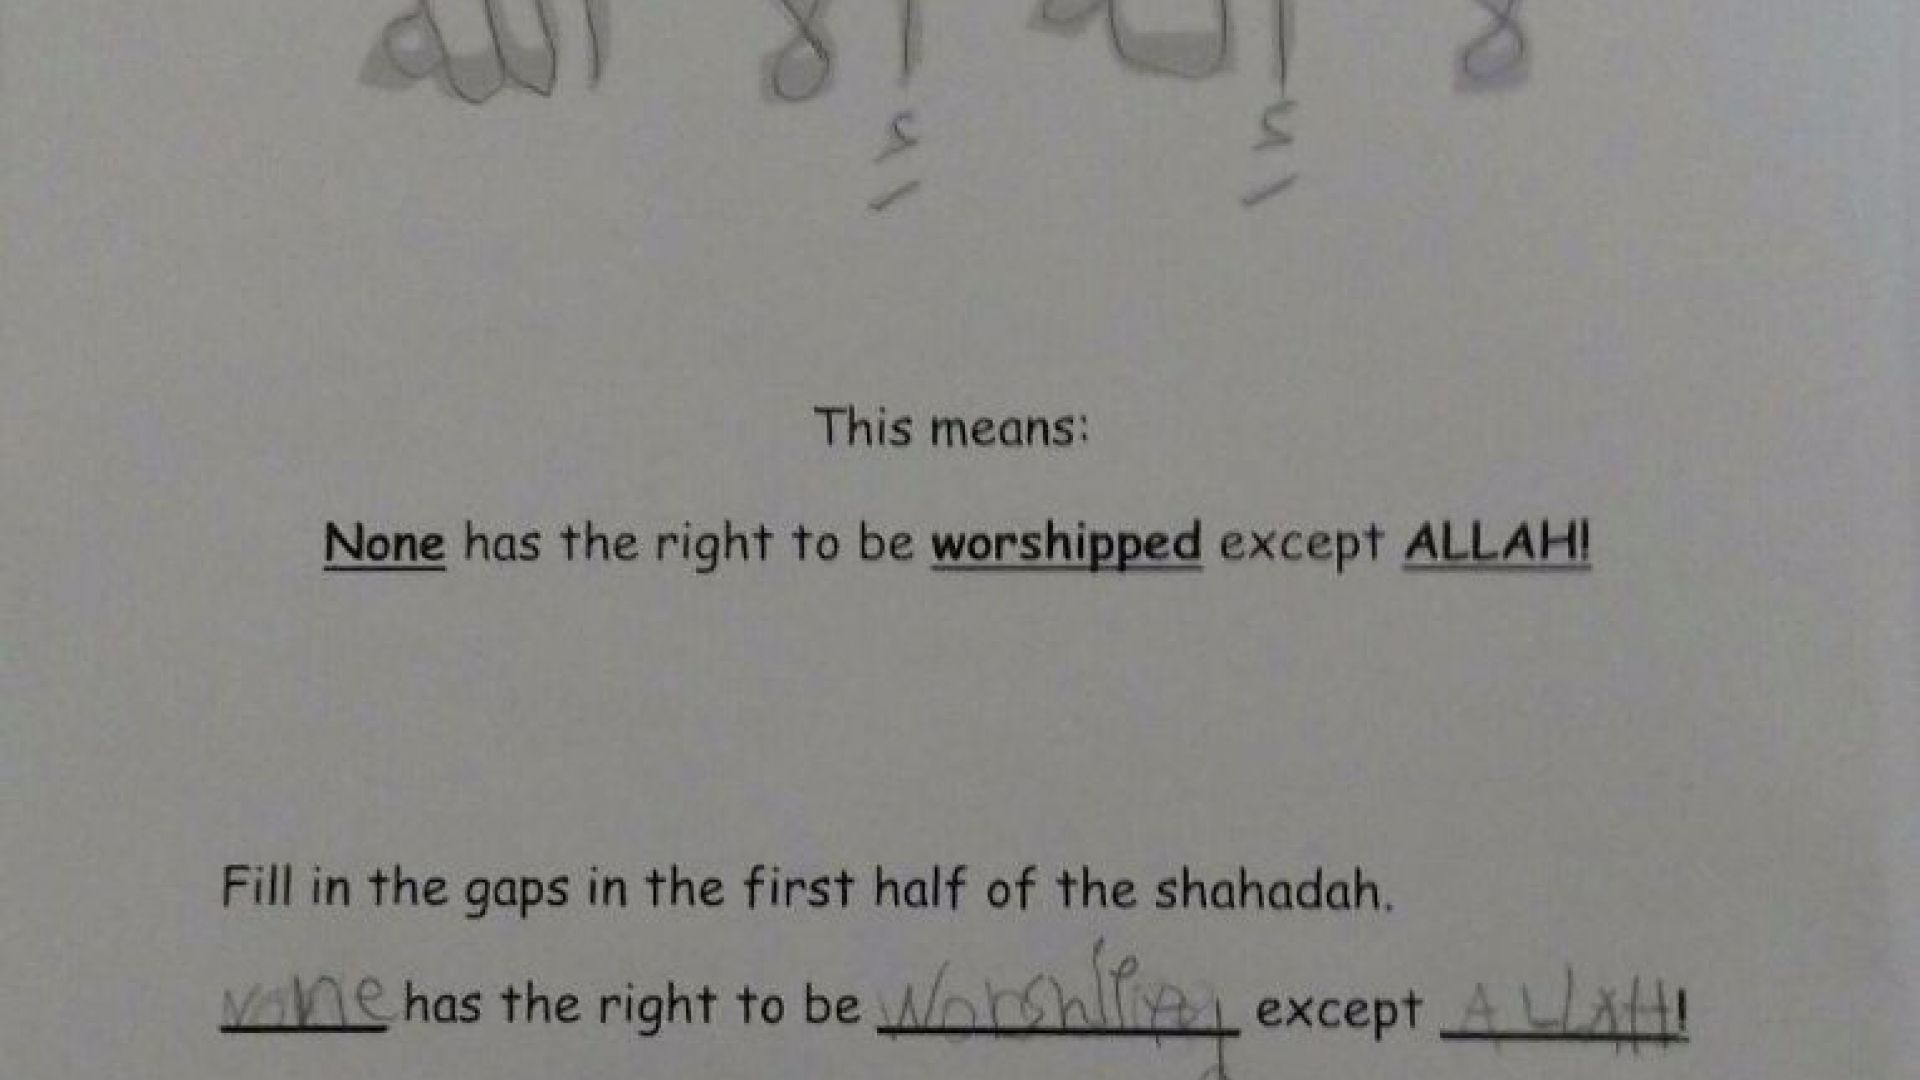 لا إله إلا الله
This means:
None has the right to be worshipped except ALLAH!
Fill in the gaps in the first half of the shahadah.
None has the right to be except ALLAH!